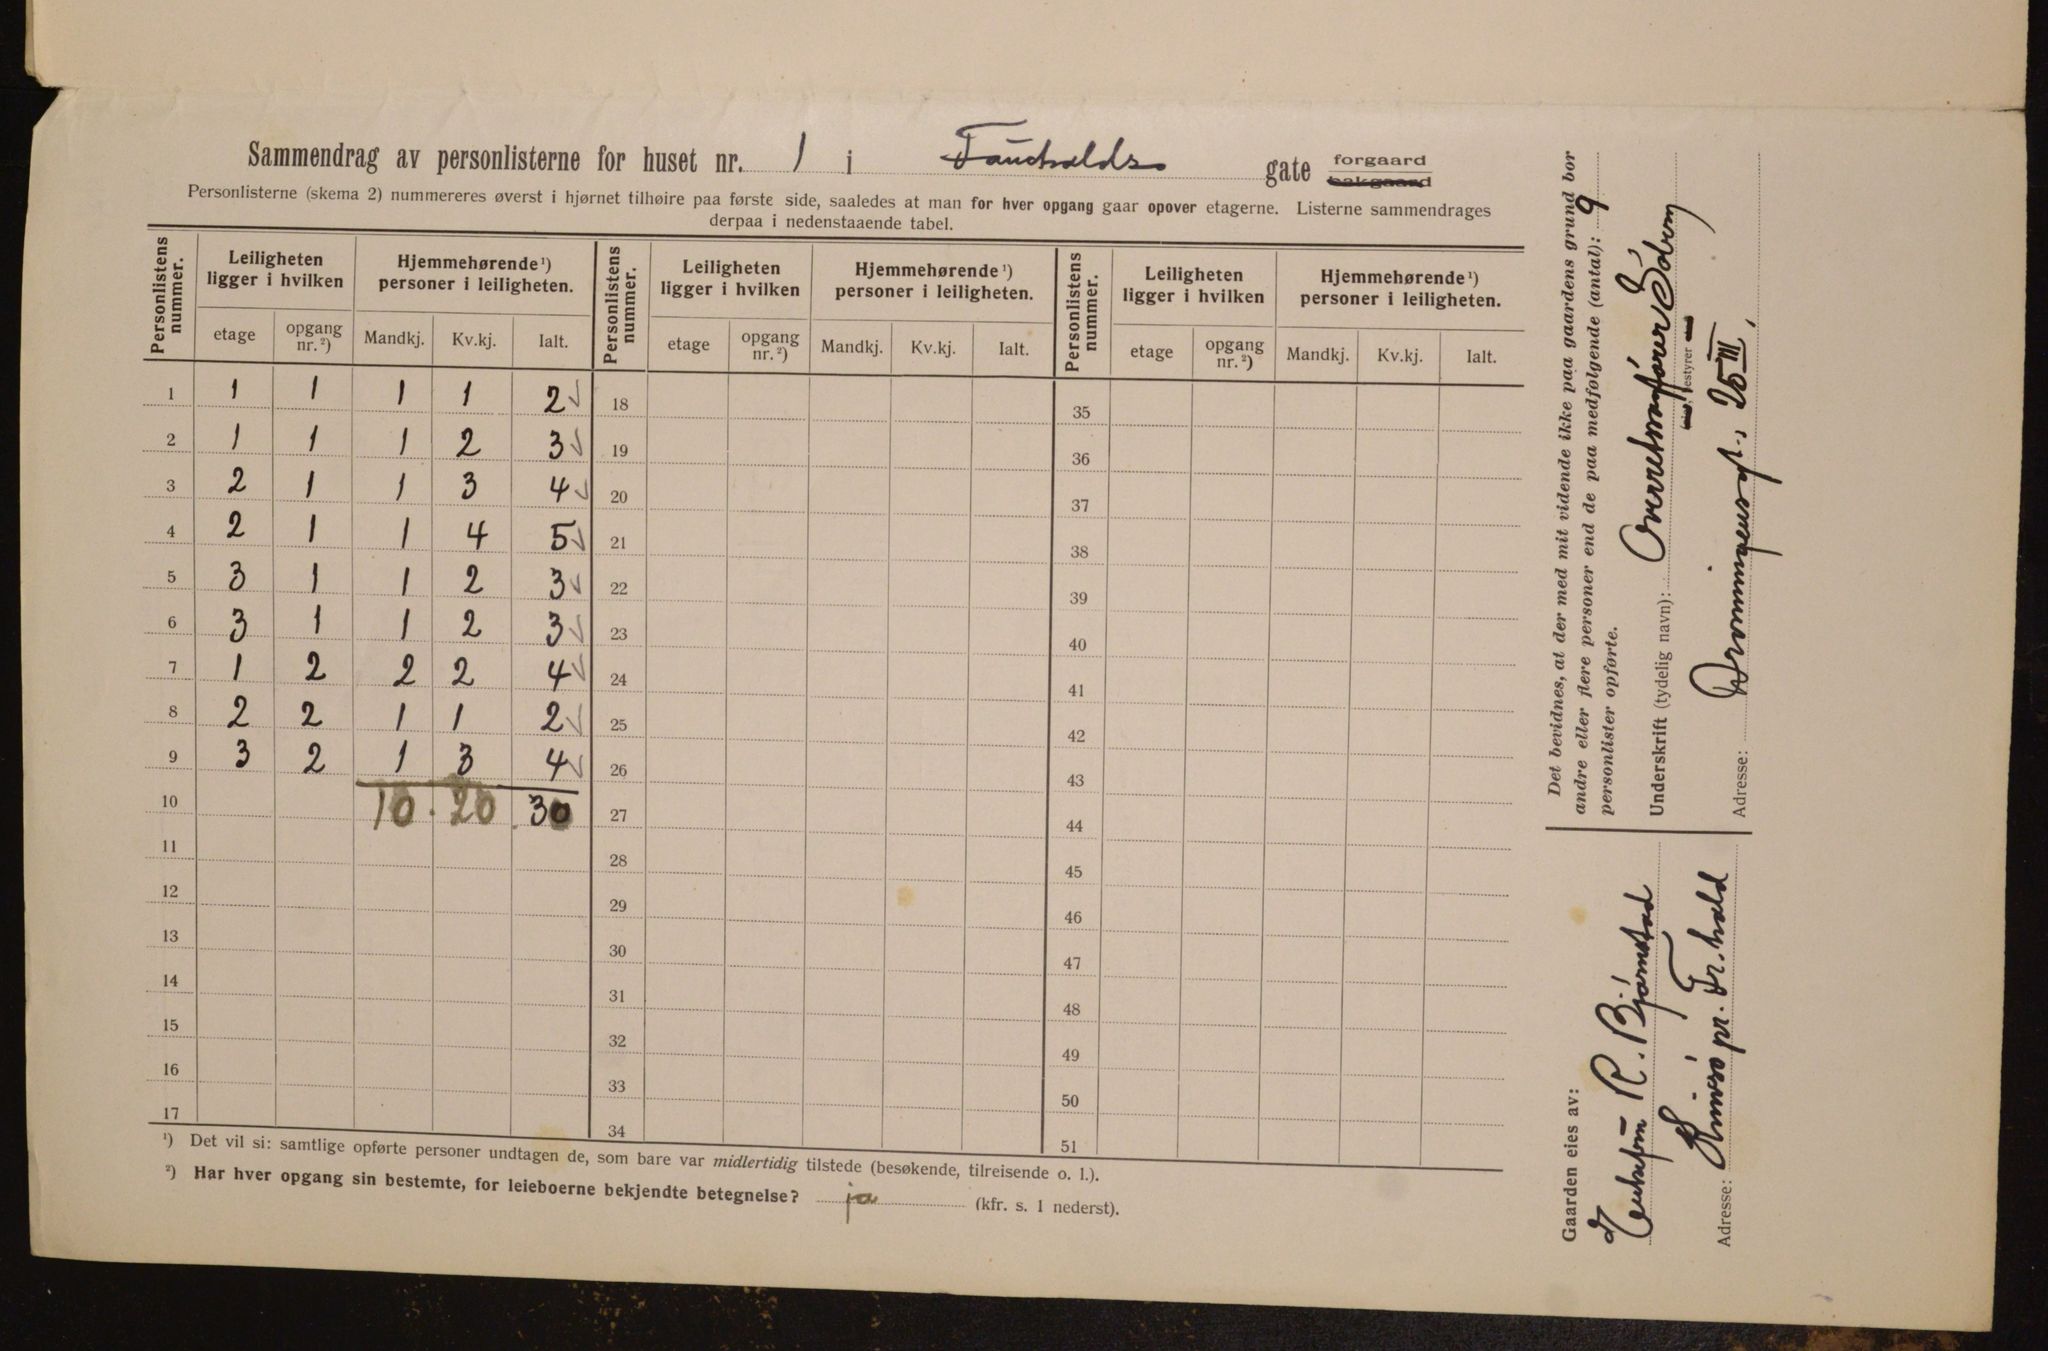 Sammendrag av personlisterne for huset nr. 1 i Fauchalds gate forgaard bakgaard
Personlisterne (skema 2) nummereres øverst i hjørnet tilhøire paa første side, saaledes at man for hver opgang gaar opover etagerne. Listerne sammendrages
derpaa i nedenstaaende tabel.
Personlistens nummer. Leiligheten ligger i hvilken Hjemmehørende¹) personer i leiligheten. Personlistens nummer. Leiligheten ligger i hvilken Hjemmehørende¹) personer i leiligheten. Personlistens nummer. Leiligheten ligger i hvilken Hjemmehørende¹) personer i leiligheten.
etage opgang nr.²) Mandkj. Kv.kj. Ialt. etage opgang nr.²) Mandkj. Kv.kj. Ialt. etage opgang nr.²) Mandkj. Kv.kj. Ialt.
1 1 1 1 1 2 18 35
2 1 1 1 2 3 19 36
3 2 1 1 3 4 20 37
4 2 1 1 4 5 21 38
5 3 1 1 2 3 22 39
6 3 1 1 2 3 23 40
7 1 2 2 2 4 24 41
8 2 2 1 1 2 25 42
9 3 2 1 3 4 26 43
10 10 20 30 27 44
11 28 45
12 29 46
13 30 47
14 31 48
15 32 49
16 33 50
17 34 51
¹) Det vil si: samtlige opførte personer undtagen de, som bare var midlertidig tilstede (besøkende, tilreisende o. l.).
²) Har hver opgang sin bestemte, for leieboerne bekjendte betegnelse? ja (kfr. s. 1 nederst).
Det bevidnes, at der med mit vidende ikke paa gaardens grund bor
andre eller flere personer end de paa medfølgende (antal): 9
personlister opførte.
Underskrift (tydelig navn): Overretssakfører Söborg
bestyrer
Adresse: Dronningensgt. 25 III,
Gaarden eies av:
R. Bjørnstad
Adresse: pr. Fr.hald